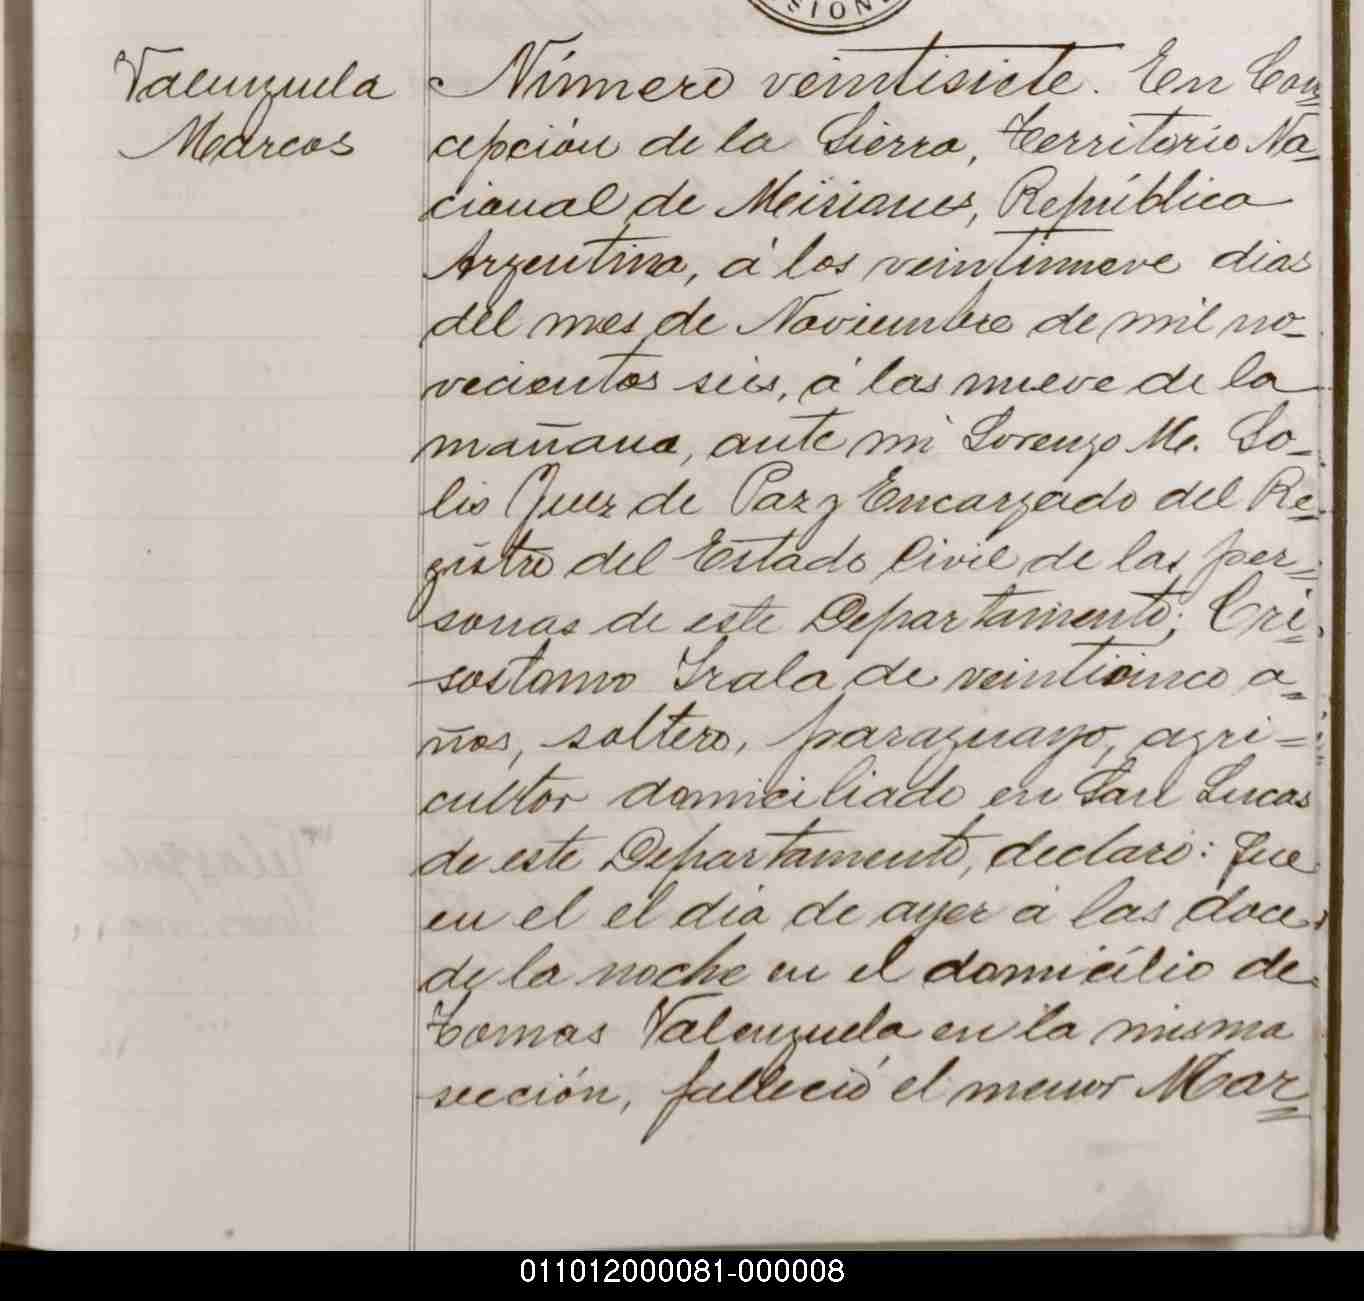 SION
Valenzuela
Marcos
Número veintisiete. En Con=
cepción de la Sierra, Territorio Na-
cional de Misiones, República
Argentina, á los veintinueve dias
del mes de Noviembre de mil no-
vecientos seis, á las nueve de la
mañana, ante mi Lorenzo M. So-
lis Juez de Paz y Encargado del Re-
gistro del Estado Civil de las per=
sonas de este Departamento; Cri-
sostomo Irala de veinticinco a-
ños, soltero, paraguayo, agri=
cultor domiciliado en San Lucas
de este Departamento, declaró: Que
en el el dia de ayer á las doce
de la noche en el domicilio de
Tomas Valenzuela en la misma
sección, falleció el menor Mar=
011012000081-000008